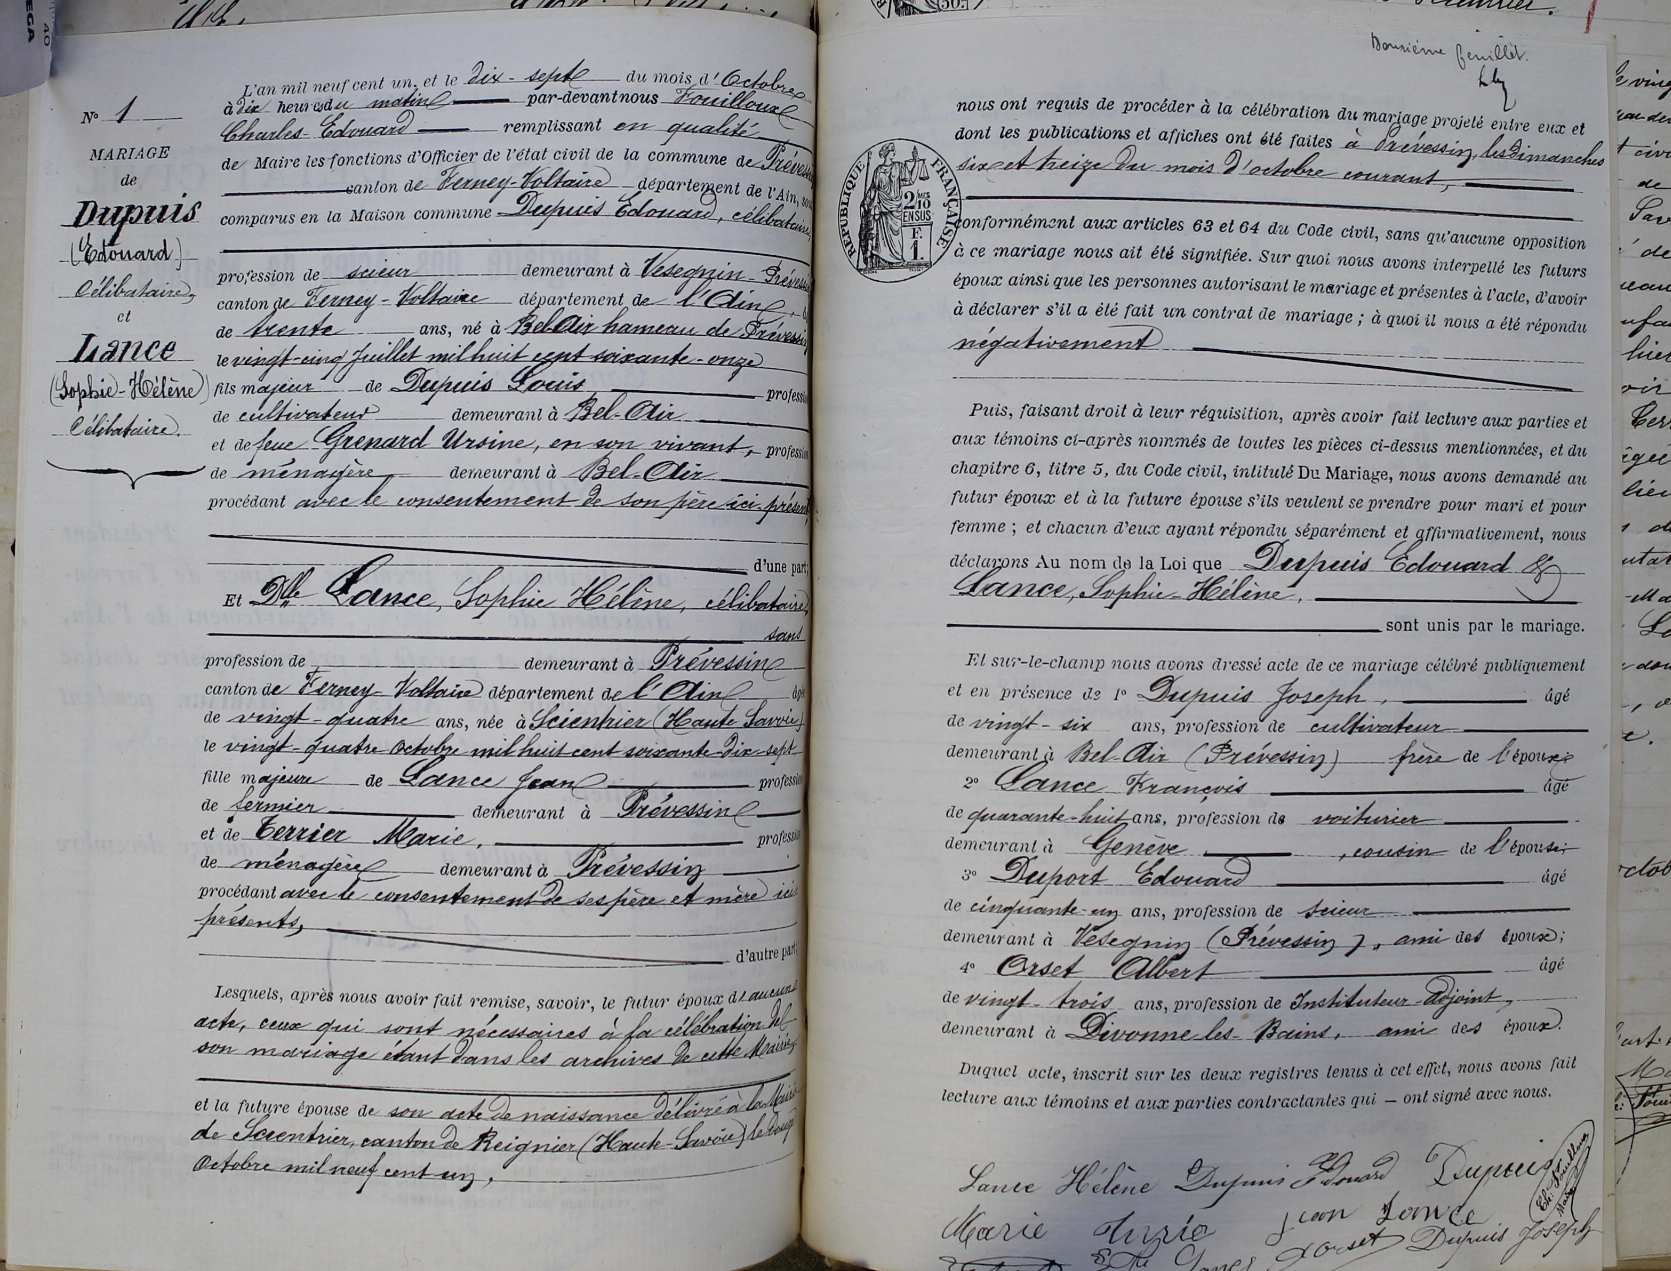 N° 1
MARIAGE
de
Dupuis
(Edouard)
Célibataire,
et
Lance
(Sophie-Hélène)
Célibataire.
L'an mil neuf cent un, et le dix-sept du mois d'Octobre
à dix heures du matin par-devant nous Fouilloux
Charles-Edouard remplissant en qualité
de Maire les fonctions d'Officier de l'état civil de la commune de Prévessin
canton de Ferney-Voltaire département de l'Ain, sont
comparus en la Maison commune Dupuis Edouard, célibataire,
profession de scieur demeurant à Vesegnin-Prévessin
canton de Ferney-Voltaire département de l'Ain,
de trente ans, né à Bel Air hameau de Prévessin
le vingt-cinq Juillet mil huit cent soixante-onze
fils majeur de Dupuis Louis profession
de cultivateur demeurant à Bel-Air
et de feue Grenard Ursine, en son vivant, profession
de ménagère demeurant à Bel-Air
procédant avec le consentement de son père ici présent,
d'une part;
Et Dlle Lance, Sophie Hélène, célibataire,
sans
profession de demeurant à Prévessin
canton de Ferney-Voltaire département de l'Ain âgée
de vingt-quatre ans, née à Scientrier (Haute Savoie)
le vingt-quatre Octobre mil huit cent soixante-dix-sept
fille majeure de Lance Jean profession
de fermier demeurant à Prévessin
et de Terrier Marie, profession
de ménagère demeurant à Prévessin
procédant avec le consentement de ses père et mère ici
présents,
d'autre part;
Lesquels, après nous avoir fait remise, savoir, le futur époux d'aucun
acte, ceux qui sont nécessaires à la célébration de
son mariage étant dans les archives de cette Mairie,
et la future épouse de son acte de naissance délivré à la Mairie
de Scientrier, canton de Reignier (Haute-Savoie) le
Octobre mil neuf cent un,
feuillet.
nous ont requis de procéder à la célébration du mariage projeté entre eux et
dont les publications et affiches ont été faites à Prévessin, les dimanches
six et treize du mois d'octobre courant,
RÉPUBLIQUE FRANÇAISE
2 DES 10 EN SUS
F. 1.
conformément aux articles 63 et 64 du Code civil, sans qu'aucune opposition
à ce mariage nous ait été signifiée. Sur quoi nous avons interpellé les futurs
époux ainsi que les personnes autorisant le mariage et présentes à l'acte, d'avoir
à déclarer s'il a été fait un contrat de mariage; à quoi il nous a été répondu
négativement
Puis, faisant droit à leur réquisition, après avoir fait lecture aux parties et
aux témoins ci-après nommés de toutes les pièces ci-dessus mentionnées, et du
chapitre 6, titre 5, du Code civil, intitulé Du Mariage, nous avons demandé au
futur époux et à la future épouse s'ils veulent se prendre pour mari et pour
femme; et chacun d'eux ayant répondu séparément et affirmativement, nous
déclarons Au nom de la Loi que Dupuis Edouard &
Lance, Sophie-Hélène,
sont unis par le mariage.
Et sur-le-champ nous avons dressé acte de ce mariage célébré publiquement
et en présence de 1° Dupuis Joseph, âgé
de vingt-six ans, profession de cultivateur
demeurant à Bel-Air (Prévessin) frère de l'époux;
2° Lance François âgé
de quarante-huit ans, profession de voiturier
demeurant à Genève, cousin de l'épouse;
3° Duport Edouard âgé
de cinquante-un ans, profession de scieur
demeurant à Vesegnin (Prévessin), ami des époux;
4° Orset Albert âgé
de vingt-trois ans, profession de Instituteur-Adjoint,
demeurant à Divonne-les-Bains, ami des époux.
Duquel acte, inscrit sur les deux registres tenus à cet effet, nous avons fait
lecture aux témoins et aux parties contractantes qui — ont signé avec nous.
Lance Hélène Dupuis Edouard Dupuis
Ch. Fouilloux Maire
Marie Jean Lance
Orset Dupuis Joseph